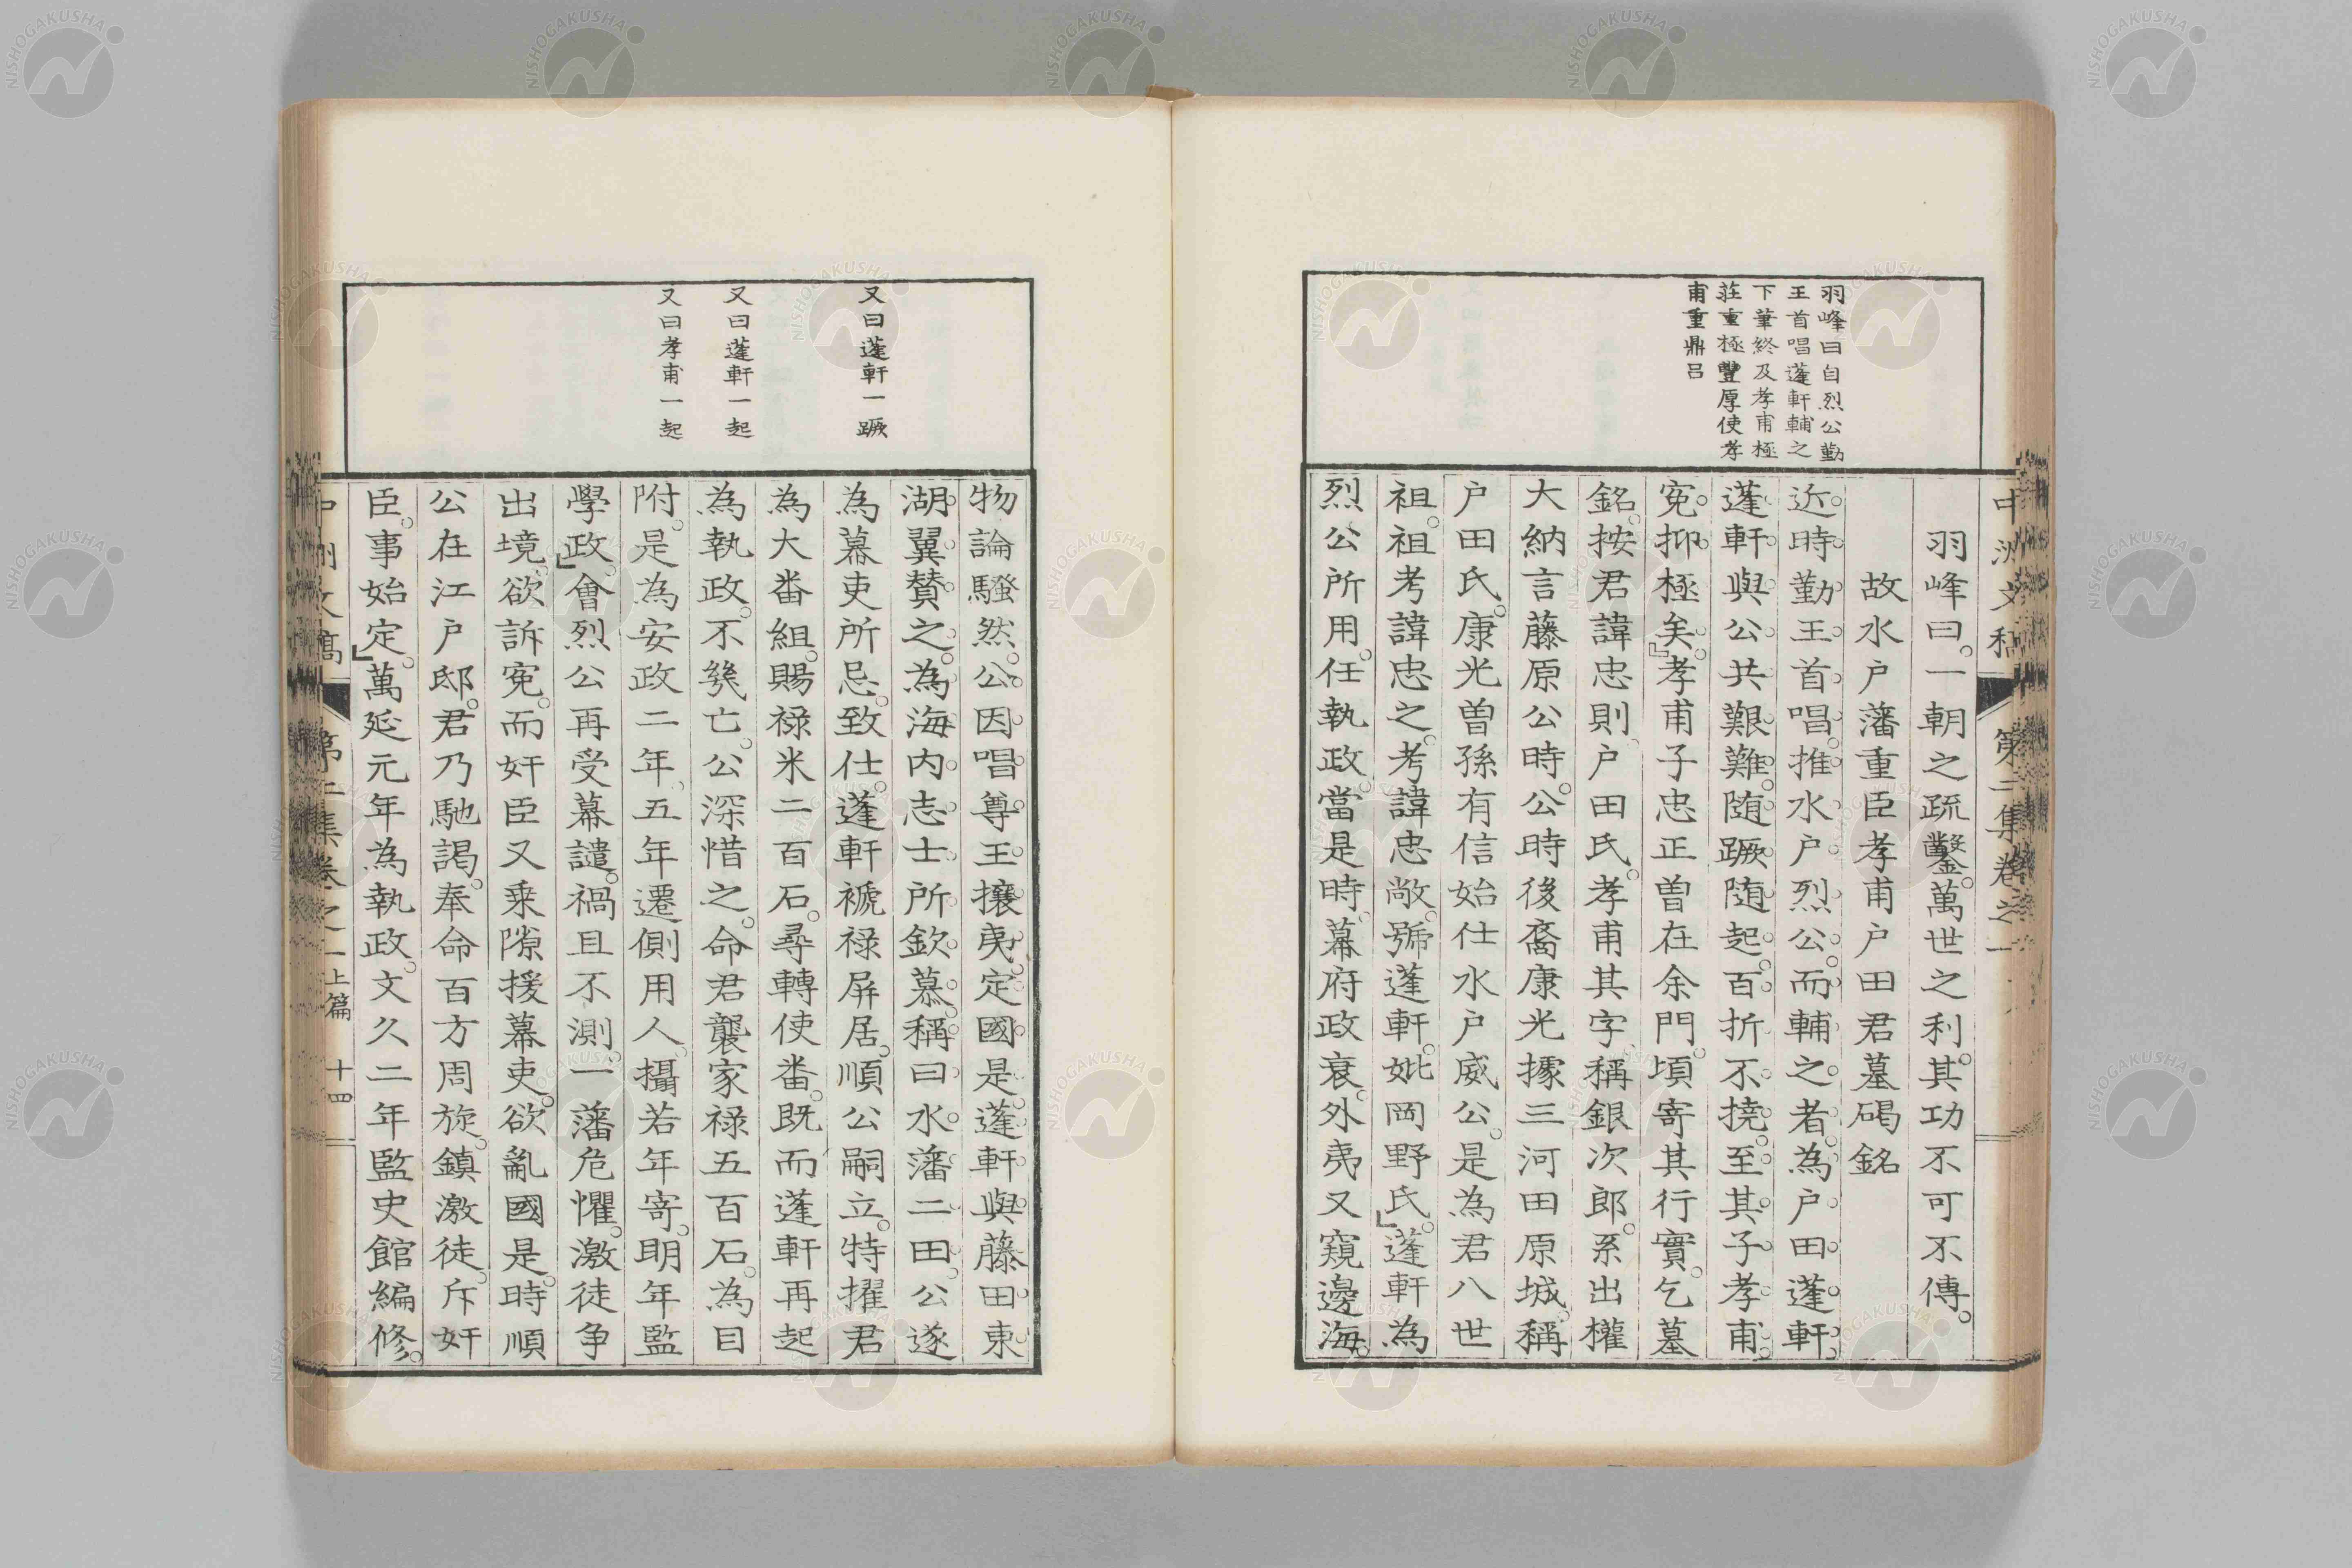 羽峰曰自烈公勤
王首唱蓬軒輔之
下筆終及孝甫極
莊重極豐厚使孝
甫重鼎呂
羽峰曰。一朝之疏鑿。萬世之利。其功不可不傳。
故水戶藩重臣孝甫戶田君墓碣銘
近時勤王首唱。推水戶烈公。而輔之者。為戶田蓬軒。
蓬軒與公共艱難。隨蹶隨起。百折不撓。至其子孝甫。
冤抑極矣。』孝甫子忠正曽在余門。頃寄其行實。乞墓
銘。按君諱忠則。戶田氏。孝甫其字。稱銀次郎。系出權
大納言藤原公時。公時後裔康光據三河田原城。稱
戶田氏。康光曽孫有信始仕水戶威公。是為君八世
祖。祖考諱忠之。考諱忠敞。號蓬軒。妣岡野氏。』蓬軒為
烈公所用。任執政。當是時。幕府政衰。外夷又窺邊海。
又曰蓬軒一蹶
又曰蓬軒一起
又曰孝甫一起
物論騷然。公因唱尊王攘夷。定國是。蓬軒與藤田東
湖翼贊之。為海內志士所欽慕。稱曰水藩二田。公遂
為幕吏所忌。致仕。蓬軒褫祿屏居。順公嗣立。特擢君
為大畨組。賜祿米二百石。尋轉使畨。既而蓬軒再起
為執政。不幾亡。公深惜之。命君襲家祿五百石。為目
附。是為安政二年、五年遷側用人。攝若年寄。明年監
學政。』會烈公再受幕譴。禍且不測。一藩危懼。激徒爭
出境。欲訴冤。而奸臣又乘隙援幕吏。欲亂國是。時順
公在江戶邸。君乃馳謁。奉命百方周旋。鎮激徒。斥奸
臣。事始定。』萬延元年為執政。文久二年監史館編修。
中洲文稿 第二集卷之一
上篇 十四
NISHOGAKUSHA